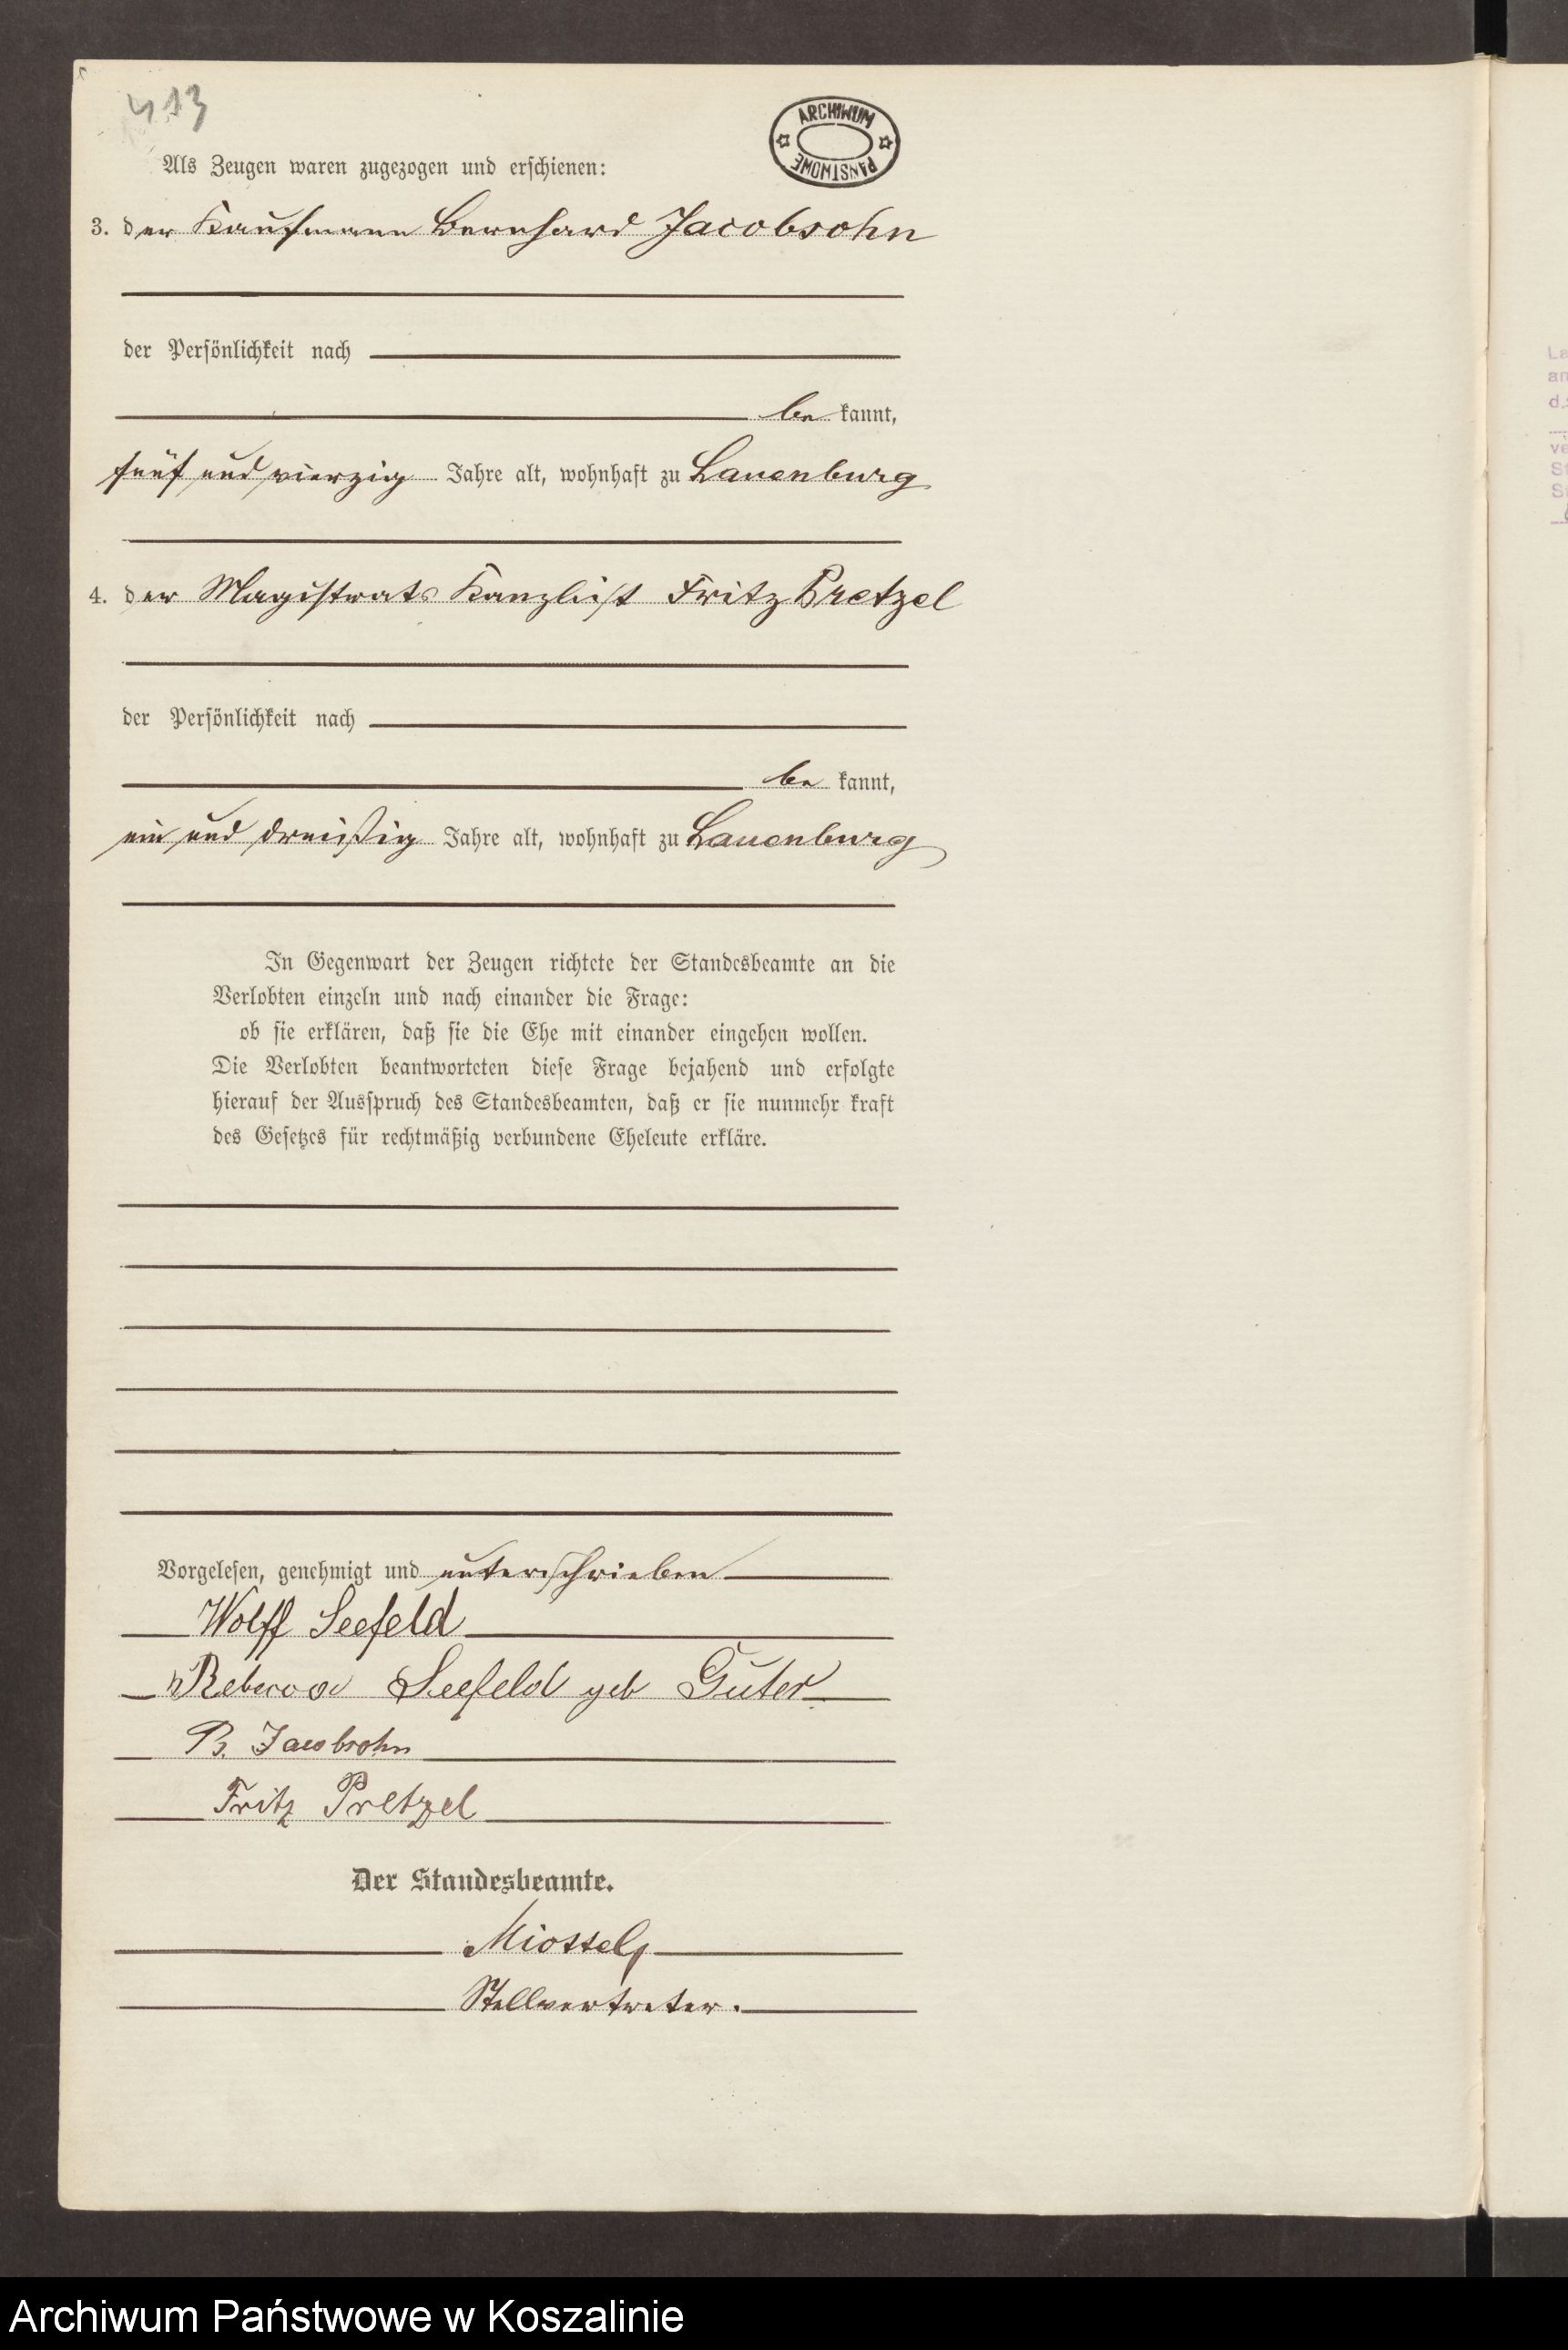 413
ARCHIWUM PAŃSTWOWE
Als Zeugen waren zugezogen und erschienen:
3. der Kaufmann Bernhard Jacobsohn
der Persönlichkeit nach
be kannt,
fünf und vierzig Jahre alt, wohnhaft zu Lauenburg
4. der Magistrats Kanzlist Fritz Pretzel
der Persönlichkeit nach
be kannt,
ein und dreißig Jahre alt, wohnhaft zu Lauenburg
In Gegenwart der Zeugen richtete der Standesbeamte an die
Verlobten einzeln und nach einander die Frage:
ob sie erklären, daß sie die Ehe mit einander eingehen wollen.
Die Verlobten beantworteten diese Frage bejahend und erfolgte
hierauf der Ausspruch des Standesbeamten, daß er sie nunmehr kraft
des Gesetzes für rechtmäßig verbundene Eheleute erkläre.
Vorgelesen, genehmigt und unterschrieben
Wolff Seefeld
Rebecca Seefeld geb Guter
B. Jacobsohn
Fritz Pretzel
Der Standesbeamte.
Stellvertreter.
Archiwum Państwowe w Koszalinie